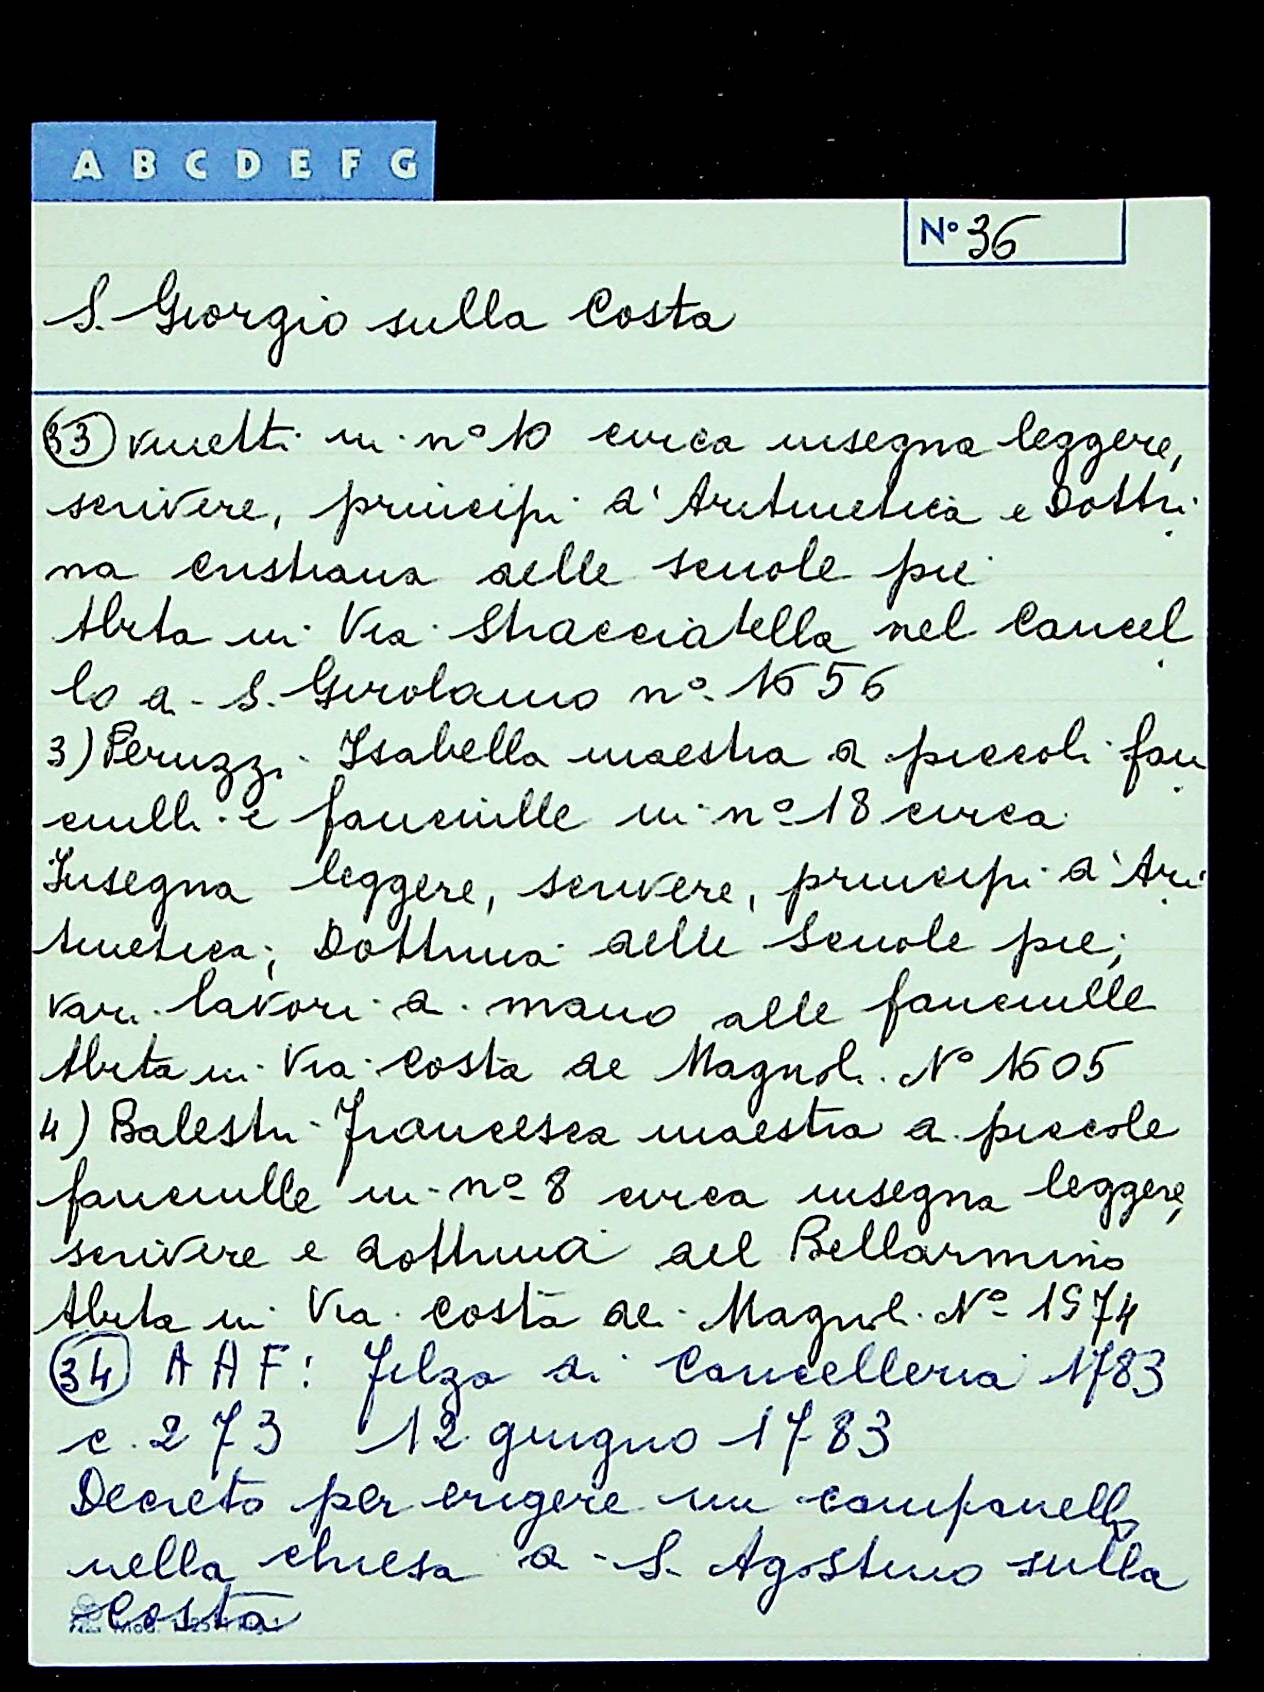 A B C D E F G
Nº 36
S. Giorgio sulla Costa
33 vinetti in nº 10 circa insegna leggere,
scrivere, principi d'Aritmetica e Dottri
na cristiana delle scuole pie
Abita in Via Stracciatella nel Cancel
lo a S. Girolamo nº 1656
3) Peruzzi Isabella maestra a piccoli fan
ciulli e fanciulle in nº 18 circa
Insegna leggere, scrivere, principi d'Ari
tmetica; Dottrina delle Scuole pie;
vari lavori a mano alle fanciulle
Abita in Via Costa de Magnoli Nº 1605
4) Balestri Francesca maestra a piccole
fanciulle in nº 8 circa insegna leggere,
scrivere e dottrina del Bellarmino
Abita in Via Costa de Magnoli Nº 1574
34 A A F: Filza di Cancelleria 1783
c. 273 12 giugno 1783
Decreto per erigere un campanello
nella chiesa a S. Agostino sulla
Costa